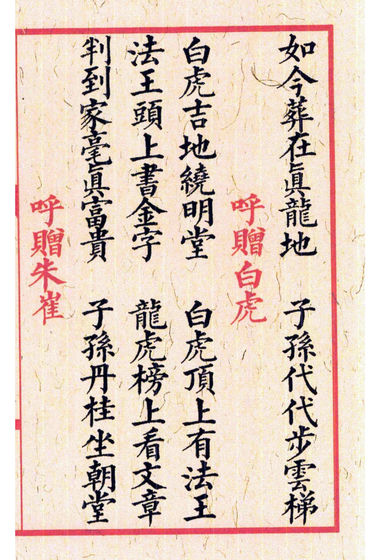 如今葬在眞龍地　子孫代代步雲梯
呼贈白虎
白虎吉地繞明堂　白虎頂上有法王
法王頭上書金字　龍虎榜上看文章
判到家毫眞富貴　子孫丹桂坐朝堂
呼贈朱崔